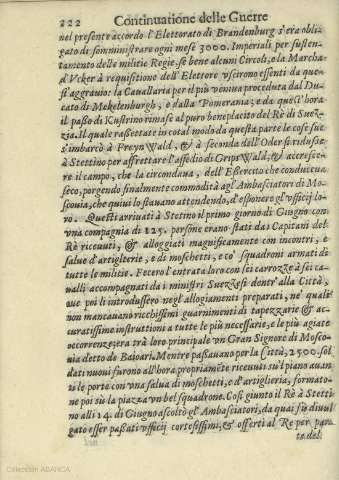 222 Continuatione delle Guerre
nel presente accordo l'Elettorato di Brandenburg s'era obli-
gato di somministrare ogni mese 3000. Imperiali per susten-
tamento delle militie Regie, se bene alcuni Circoli, e la Marcha
d'Vcker à requisitione dell'Elettore vscirono essenti da que-
st'aggrauio: la Cauallaria per il più veniua proceduta dal Du-
cato di Mekelenburgh, e dalla Pomerania; e da quest'hora
il passo di Kustrino rimase al puro beneplacito del Rè di Suez-
zia. Il quale rassettate in cotal modo da questa parte le cose sue
s'imbarcò à FreynWald, & à seconda dell'Oder si ridusse
à Stettino per affrettare l'assedio di GripsWald, & accresce-
re il campo, che la circondaua, dell'Essercito che conduceua
seco, porgendo finalmente commodità agl'Ambasciatori di Mo-
scouia, che quiui lo stauano attendendo, d'esponere gl'vfficij lo-
ro. Questi arriuati à Stetino il primo giorno di Giugno con
vna compagnia di 125. persone erano stati da i Capitani del
Rè riceuuti, & alloggiati magnificamente con incontri, e
salue d'artiglierie, e di moschetti, e co' squadroni armati di
tutte le militie. Fecero l'entrata loro con sei carozze à sei ca-
ualli accompagnati da i ministri Suezzesi dentr'alla Città,
que poi li introdussero negl'allogiamenti preparati, ne' quali
non mancauano ricchissimi guarnimenti di tapezzarie & ac-
curatissime instruttioni a tutte le più necessarie, e le più agiate
occorrenze; era trà loro principale vn Gran Signore di Mosco-
uia detto de Baioari. Mentre passauano per la Città, 2500. sol
dati nuoui furono all'hora propriamẽte riceuuti sù'l piano auan-
ti le porte con vna salua di moschetti, e d'artiglieria, formato-
ne poi sù la piazza vn bel squadrone. Così giunto il Rè à Stetti
no alli 14. di Giugno ascoltò gl'Ambasciatori, da quai si è diuul
gato esser passati vfficij cortesissimi, & offerti al Re per par-
te del
Colección ABANCA